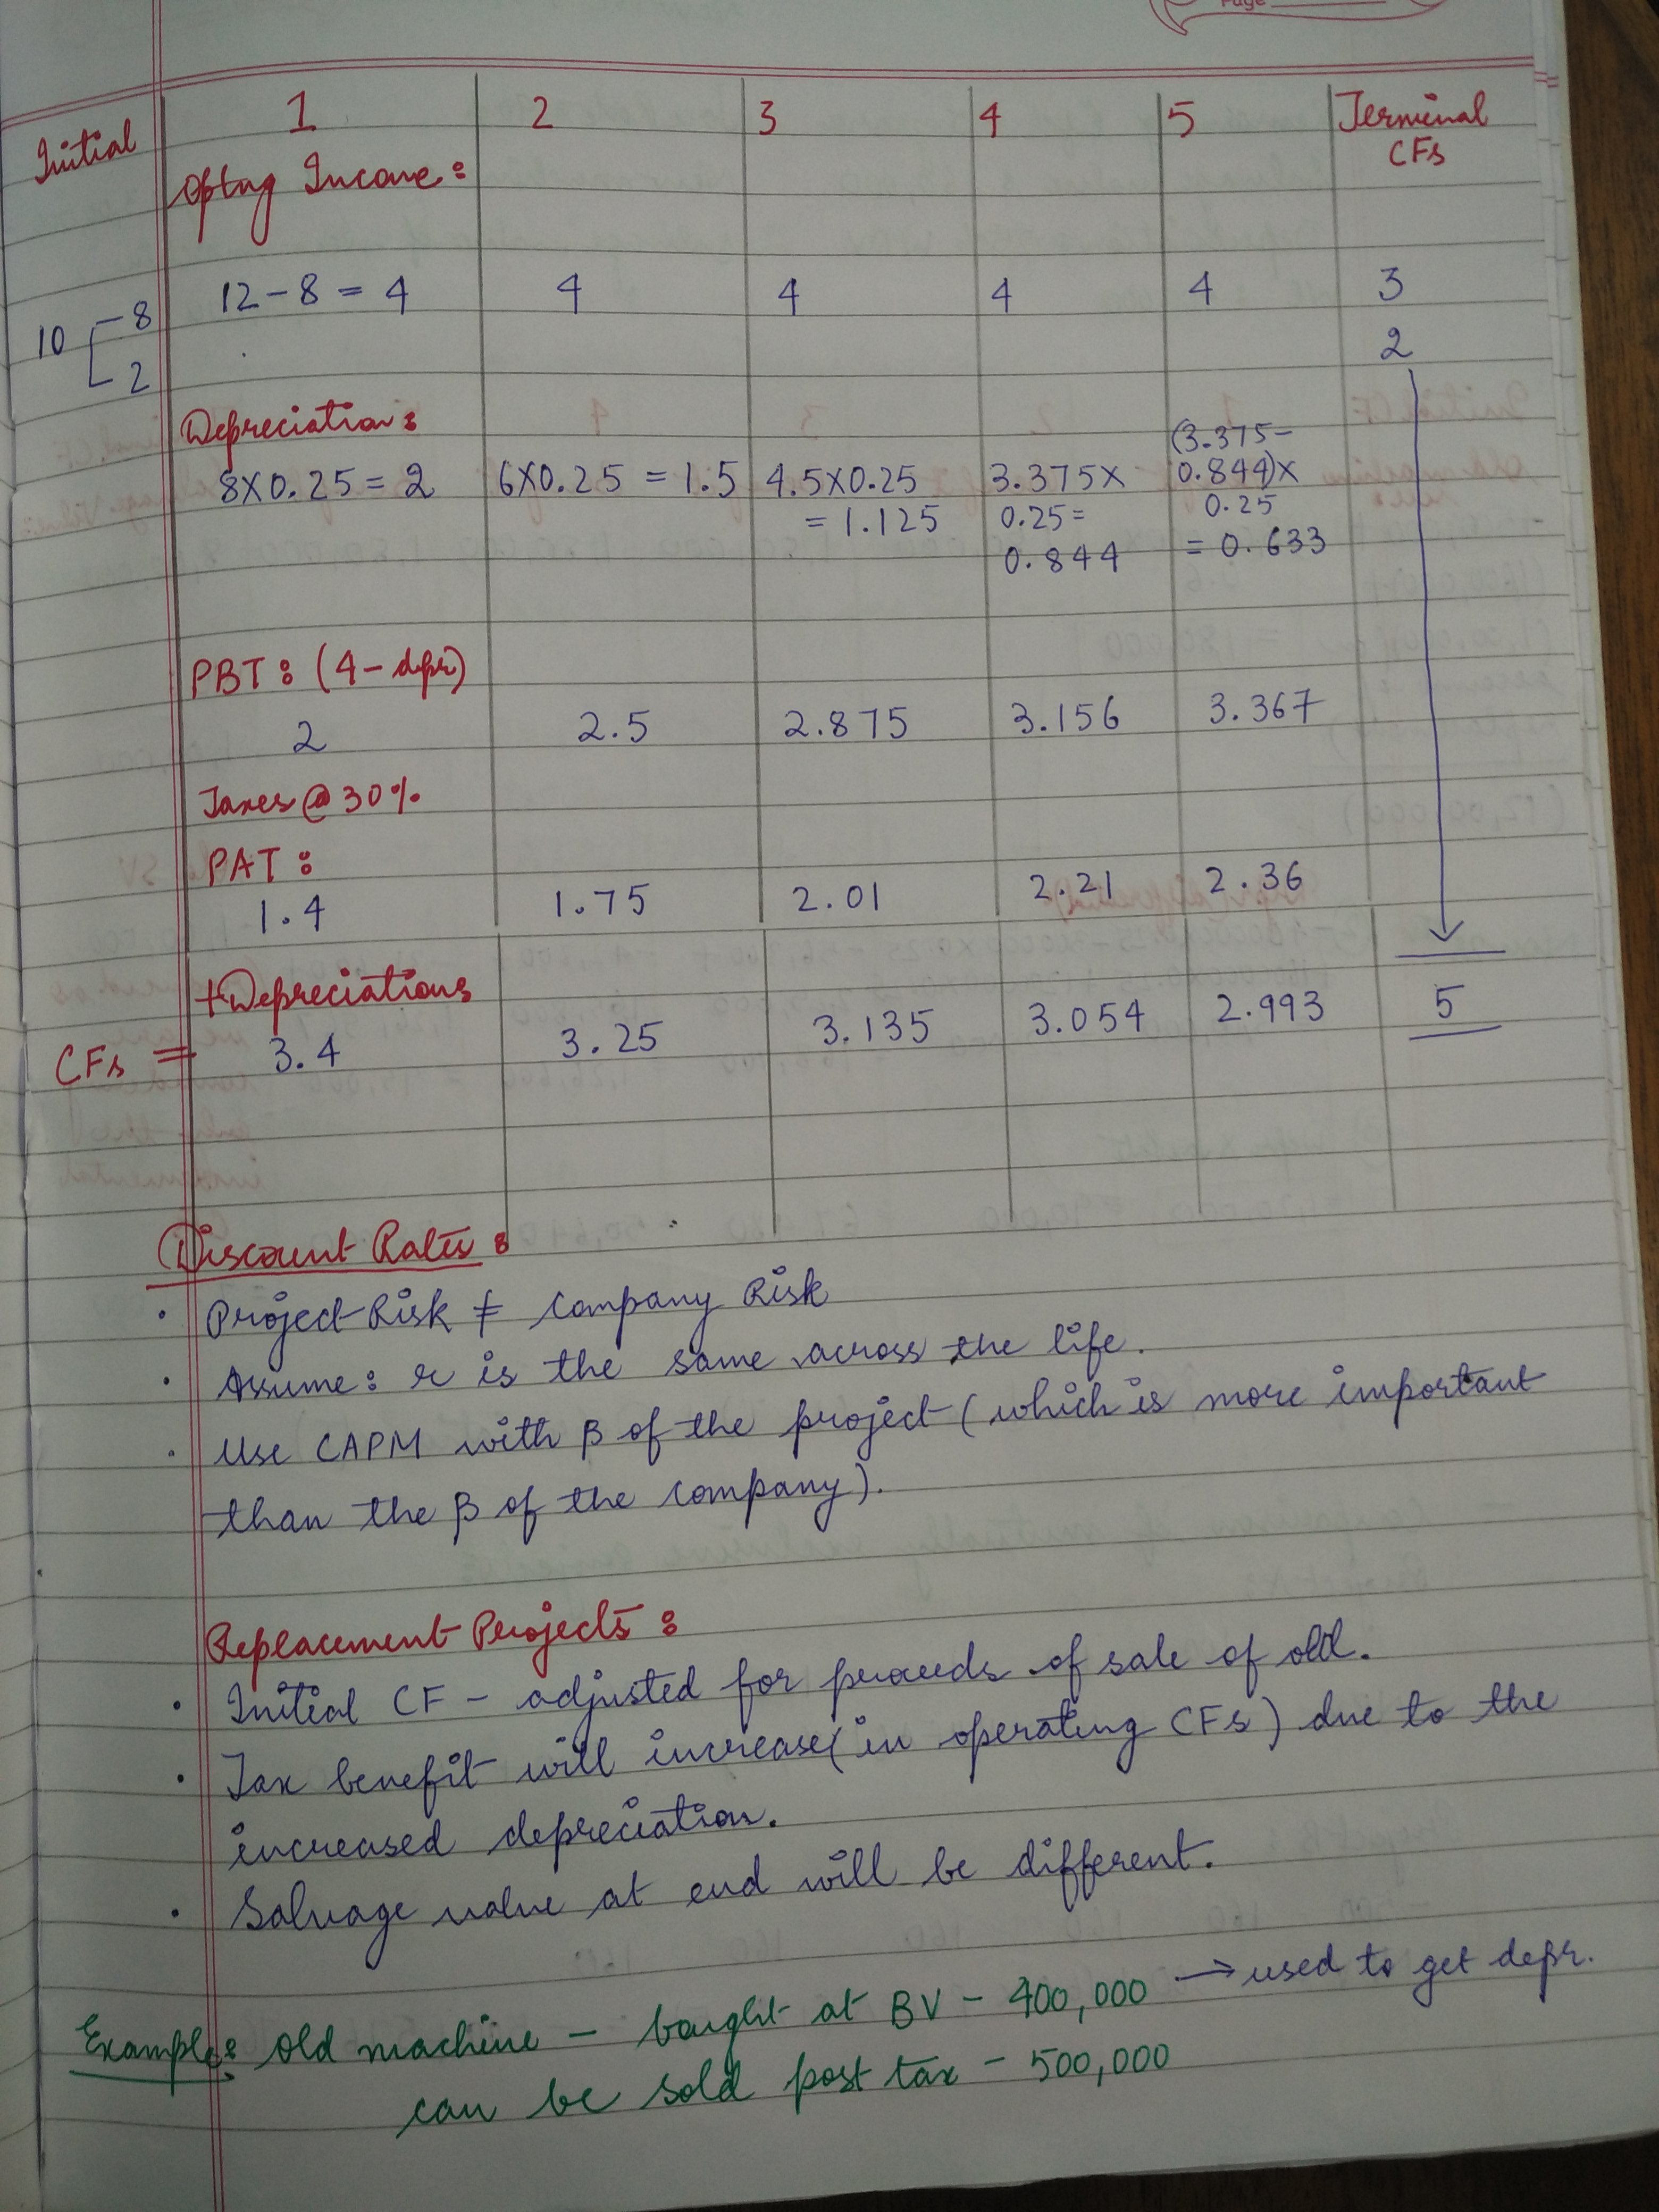 Page
Initial 1 2 3 4 5 Terminal
CFs
Optng Income:
12-8 = 4 4 4 4 4 3
10 8
2 2
Depreciation:
8X0.25 = 2 6X0.25 = 1.5 4.5X0.25 = 1.125 3.375X 0.25= 0.844 (3.375- 0.844)X 0.25 = 0.633
PBT: (4-depr)
2 2.5 2.875 3.156 3.367
Taxes @ 30%
PAT:
1.4 1.75 2.01 2.21 2.36
+Depreciations
CFs = 3.4 3.25 3.135 3.054 2.993 5
Discount Rates:
· Project Risk ≠ Company Risk
· Assume: r is the same across the life.
· Use CAPM with β of the project (which is more important
than the β of the company).
Replacement Projects:
· Initial CF - adjusted for proceeds of sale of old.
· Tax benefit will increase (in operating CFs) due to the
increased depreciation.
· Salvage value at end will be different.
Example: Old machine - bought at BV - 400,000 → used to get depr.
can be sold post tax - 500,000